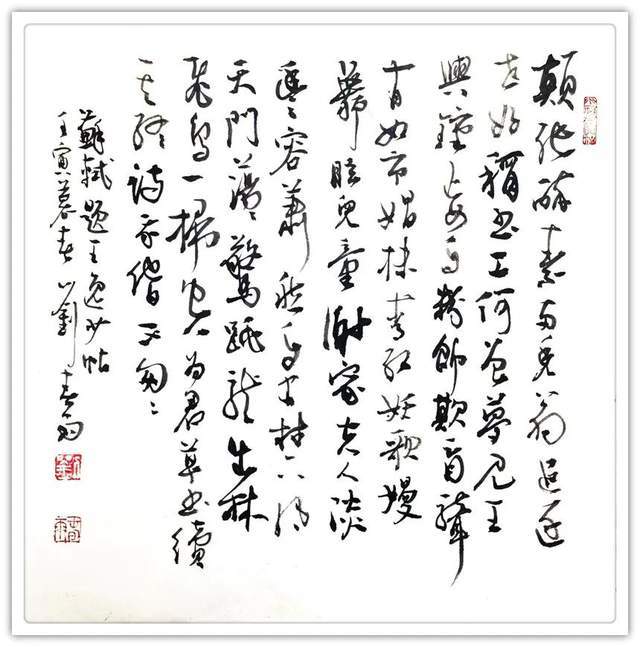 顛張醉素兩禿翁追逐
世好稱書工何曾夢見王
與鐘妄自粉飾欺盲聾
有如市娼抹青紅妖歌嫚
舞眩兒童謝家夫人淡
豐容蕭然自有林下風
天門蕩〻驚跳龍出林
飛鳥一掃空為君草書續
其終待我他日不匆〻
蘇軾題王逸少帖
壬寅暮春劉